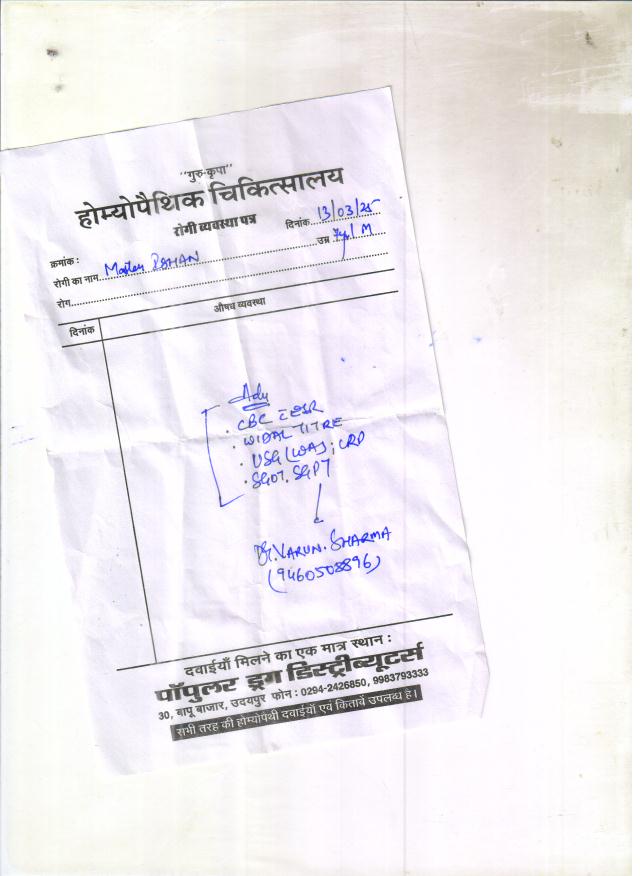 "गुरु-कृपा"
होम्योपैथिक चिकित्सालय
रोगी व्यवस्था पत्र
दिनांक 13/03/25
क्रमांक :
उम्र 7yr/M
रोगी का नाम Master ISHAN
रोग
दिनांक औषध व्यवस्था
Adv
. CBC c̄ ESR
. WIDAL TITRE
. USG (WA) ; CRP
. SGOT. SGPT
Dr. VARUN. SHARMA
(9460508896)
दवाईयाँ मिलने का एक मात्र स्थान :
पॉपुलर ड्रग डिस्ट्रीब्यूटर्स
30, बापू बाजार, उदयपुर फोन : 0294-2426850, 9983793333
सभी तरह की होम्योपैथी दवाईयाँ एवं किताबें उपलब्ध है।